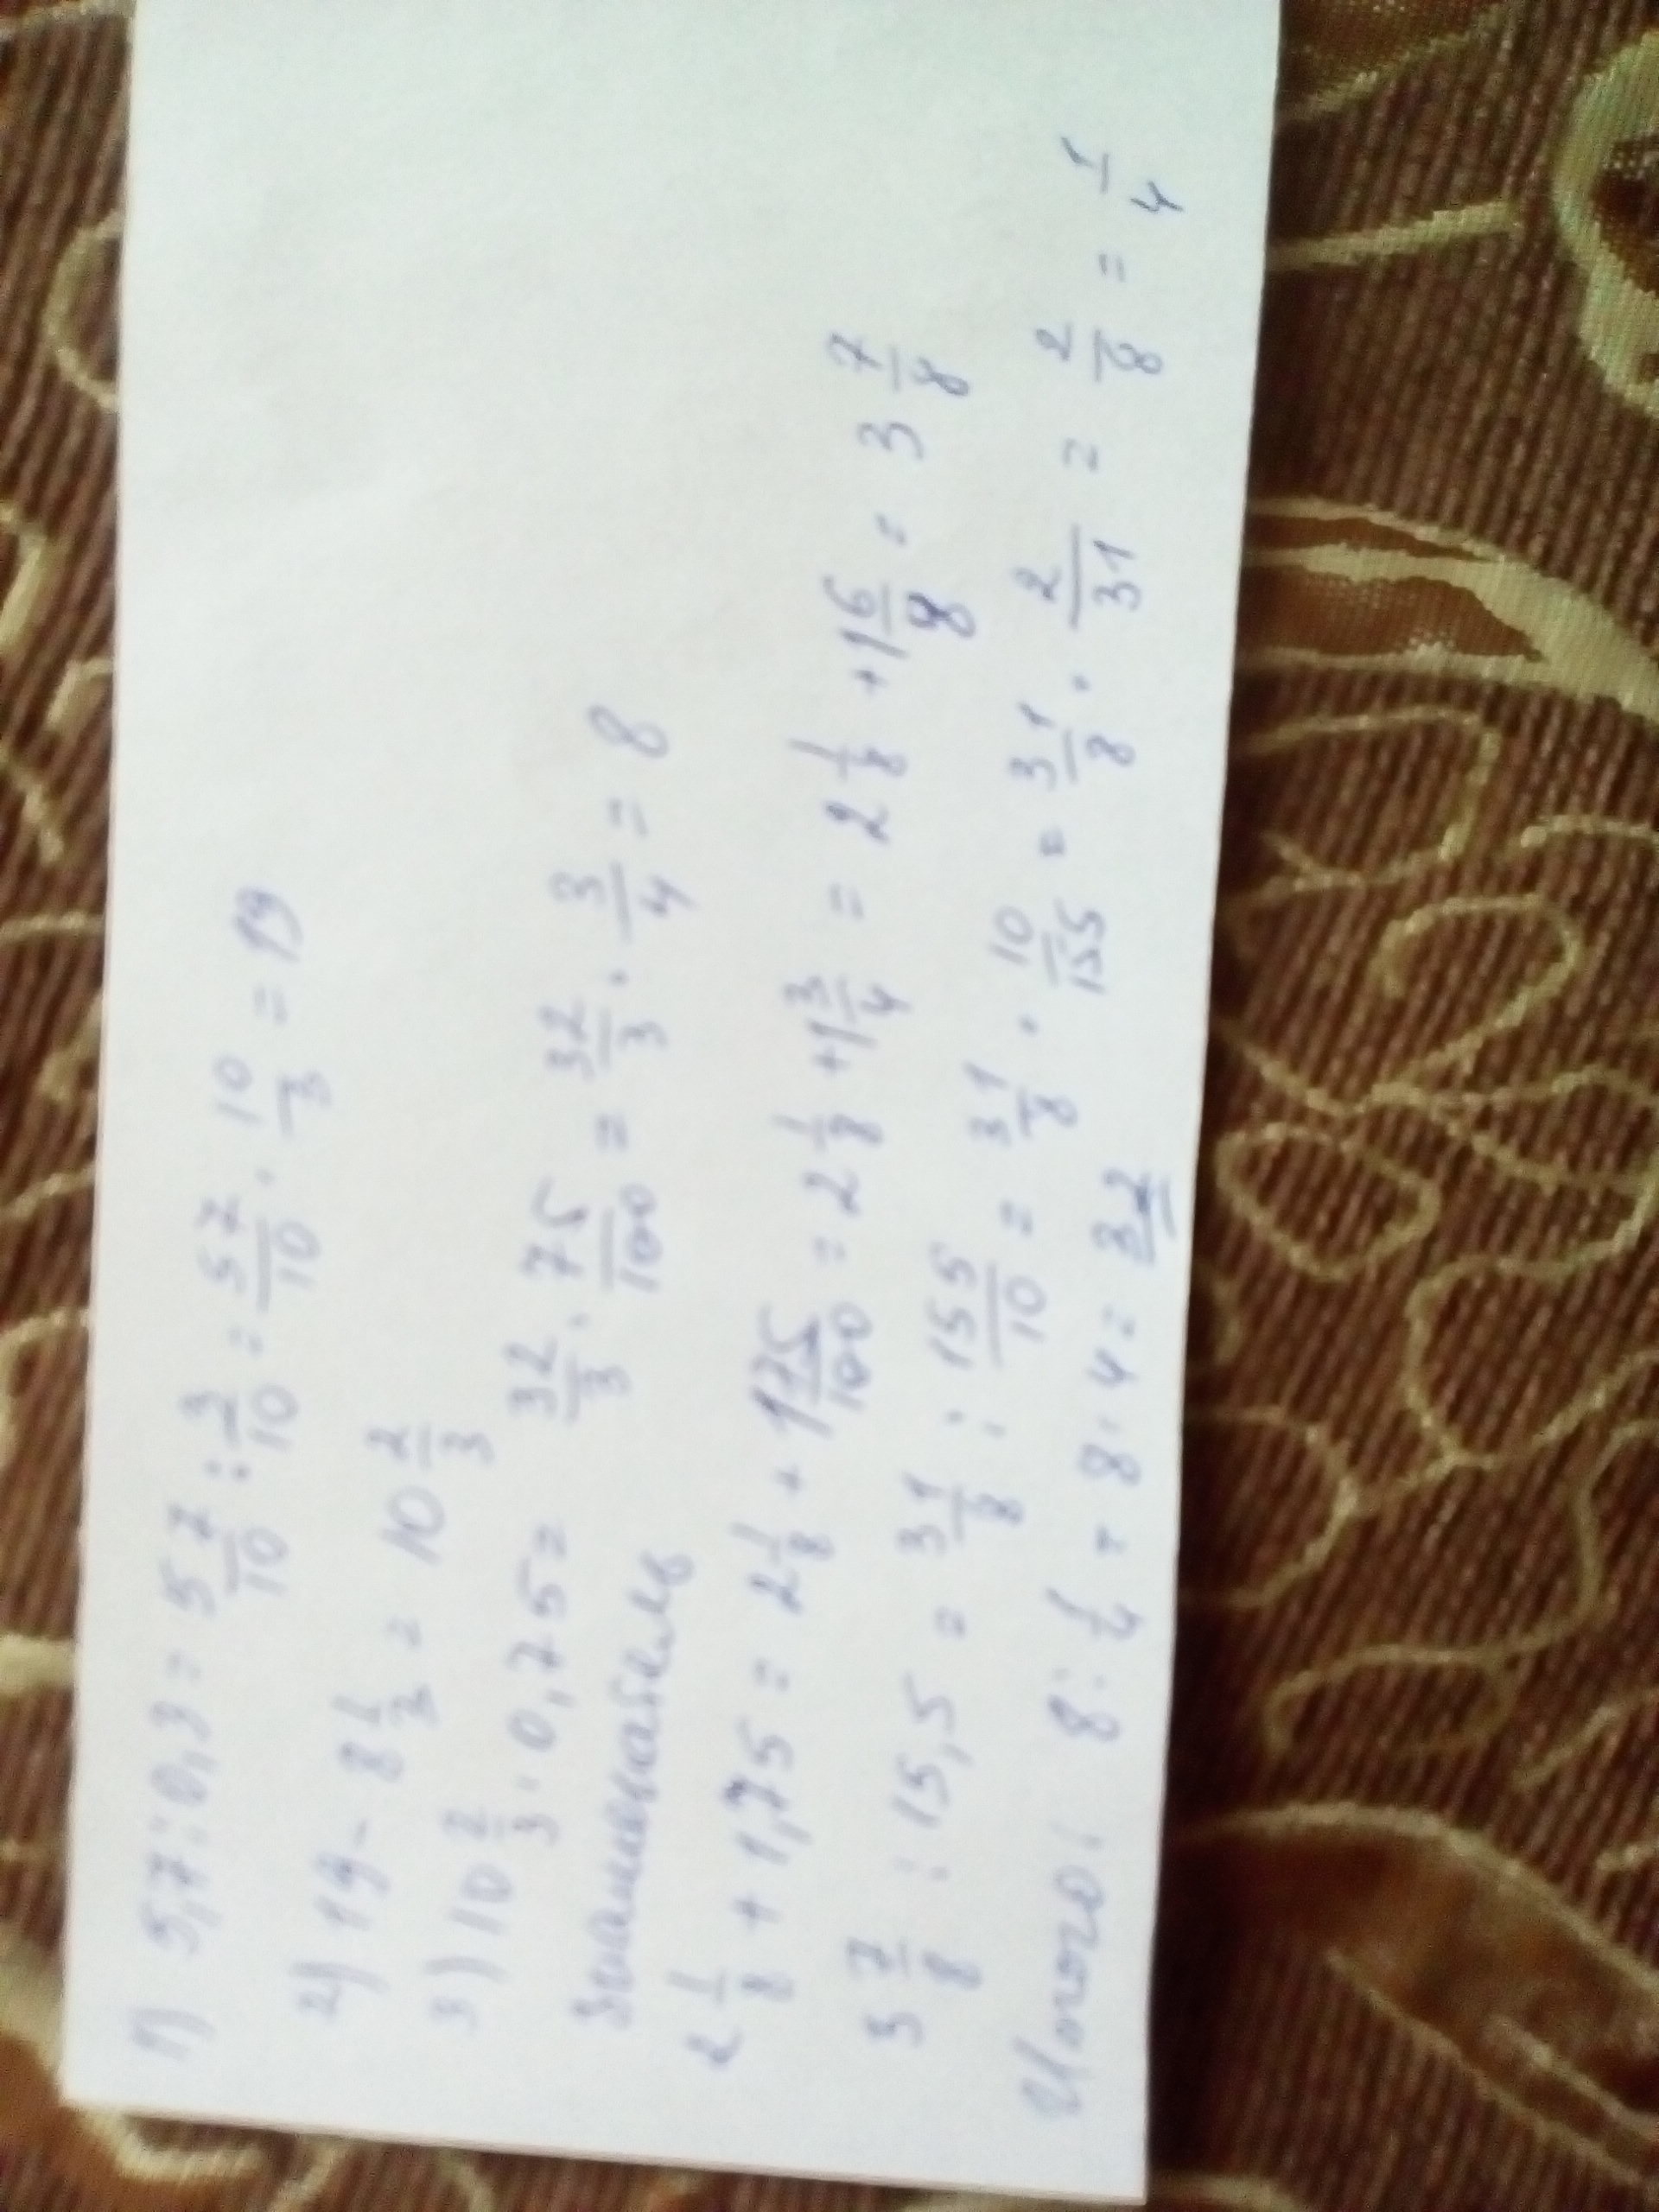 1) 5,7 : 0,3 = 5 7/10 : 3/10 = 57/10 · 10/3 = 19
2) 19 - 8 1/3 = 10 2/3
3) 10 2/3 · 0,75 = 32/3 · 75/100 = 32/3 · 3/4 = 8
Знаменатель
2 1/8 + 1,75 = 2 1/8 + 1 75/100 = 2 1/8 + 1 3/4 = 2 1/8 + 1 6/8 = 3 7/8
3 7/8 : 15,5 = 31/8 : 155/10 = 31/8 · 10/155 = 31/8 · 2/31 = 2/8 = 1/4
Итого: 8 : 1/4 = 8 · 4 = 32